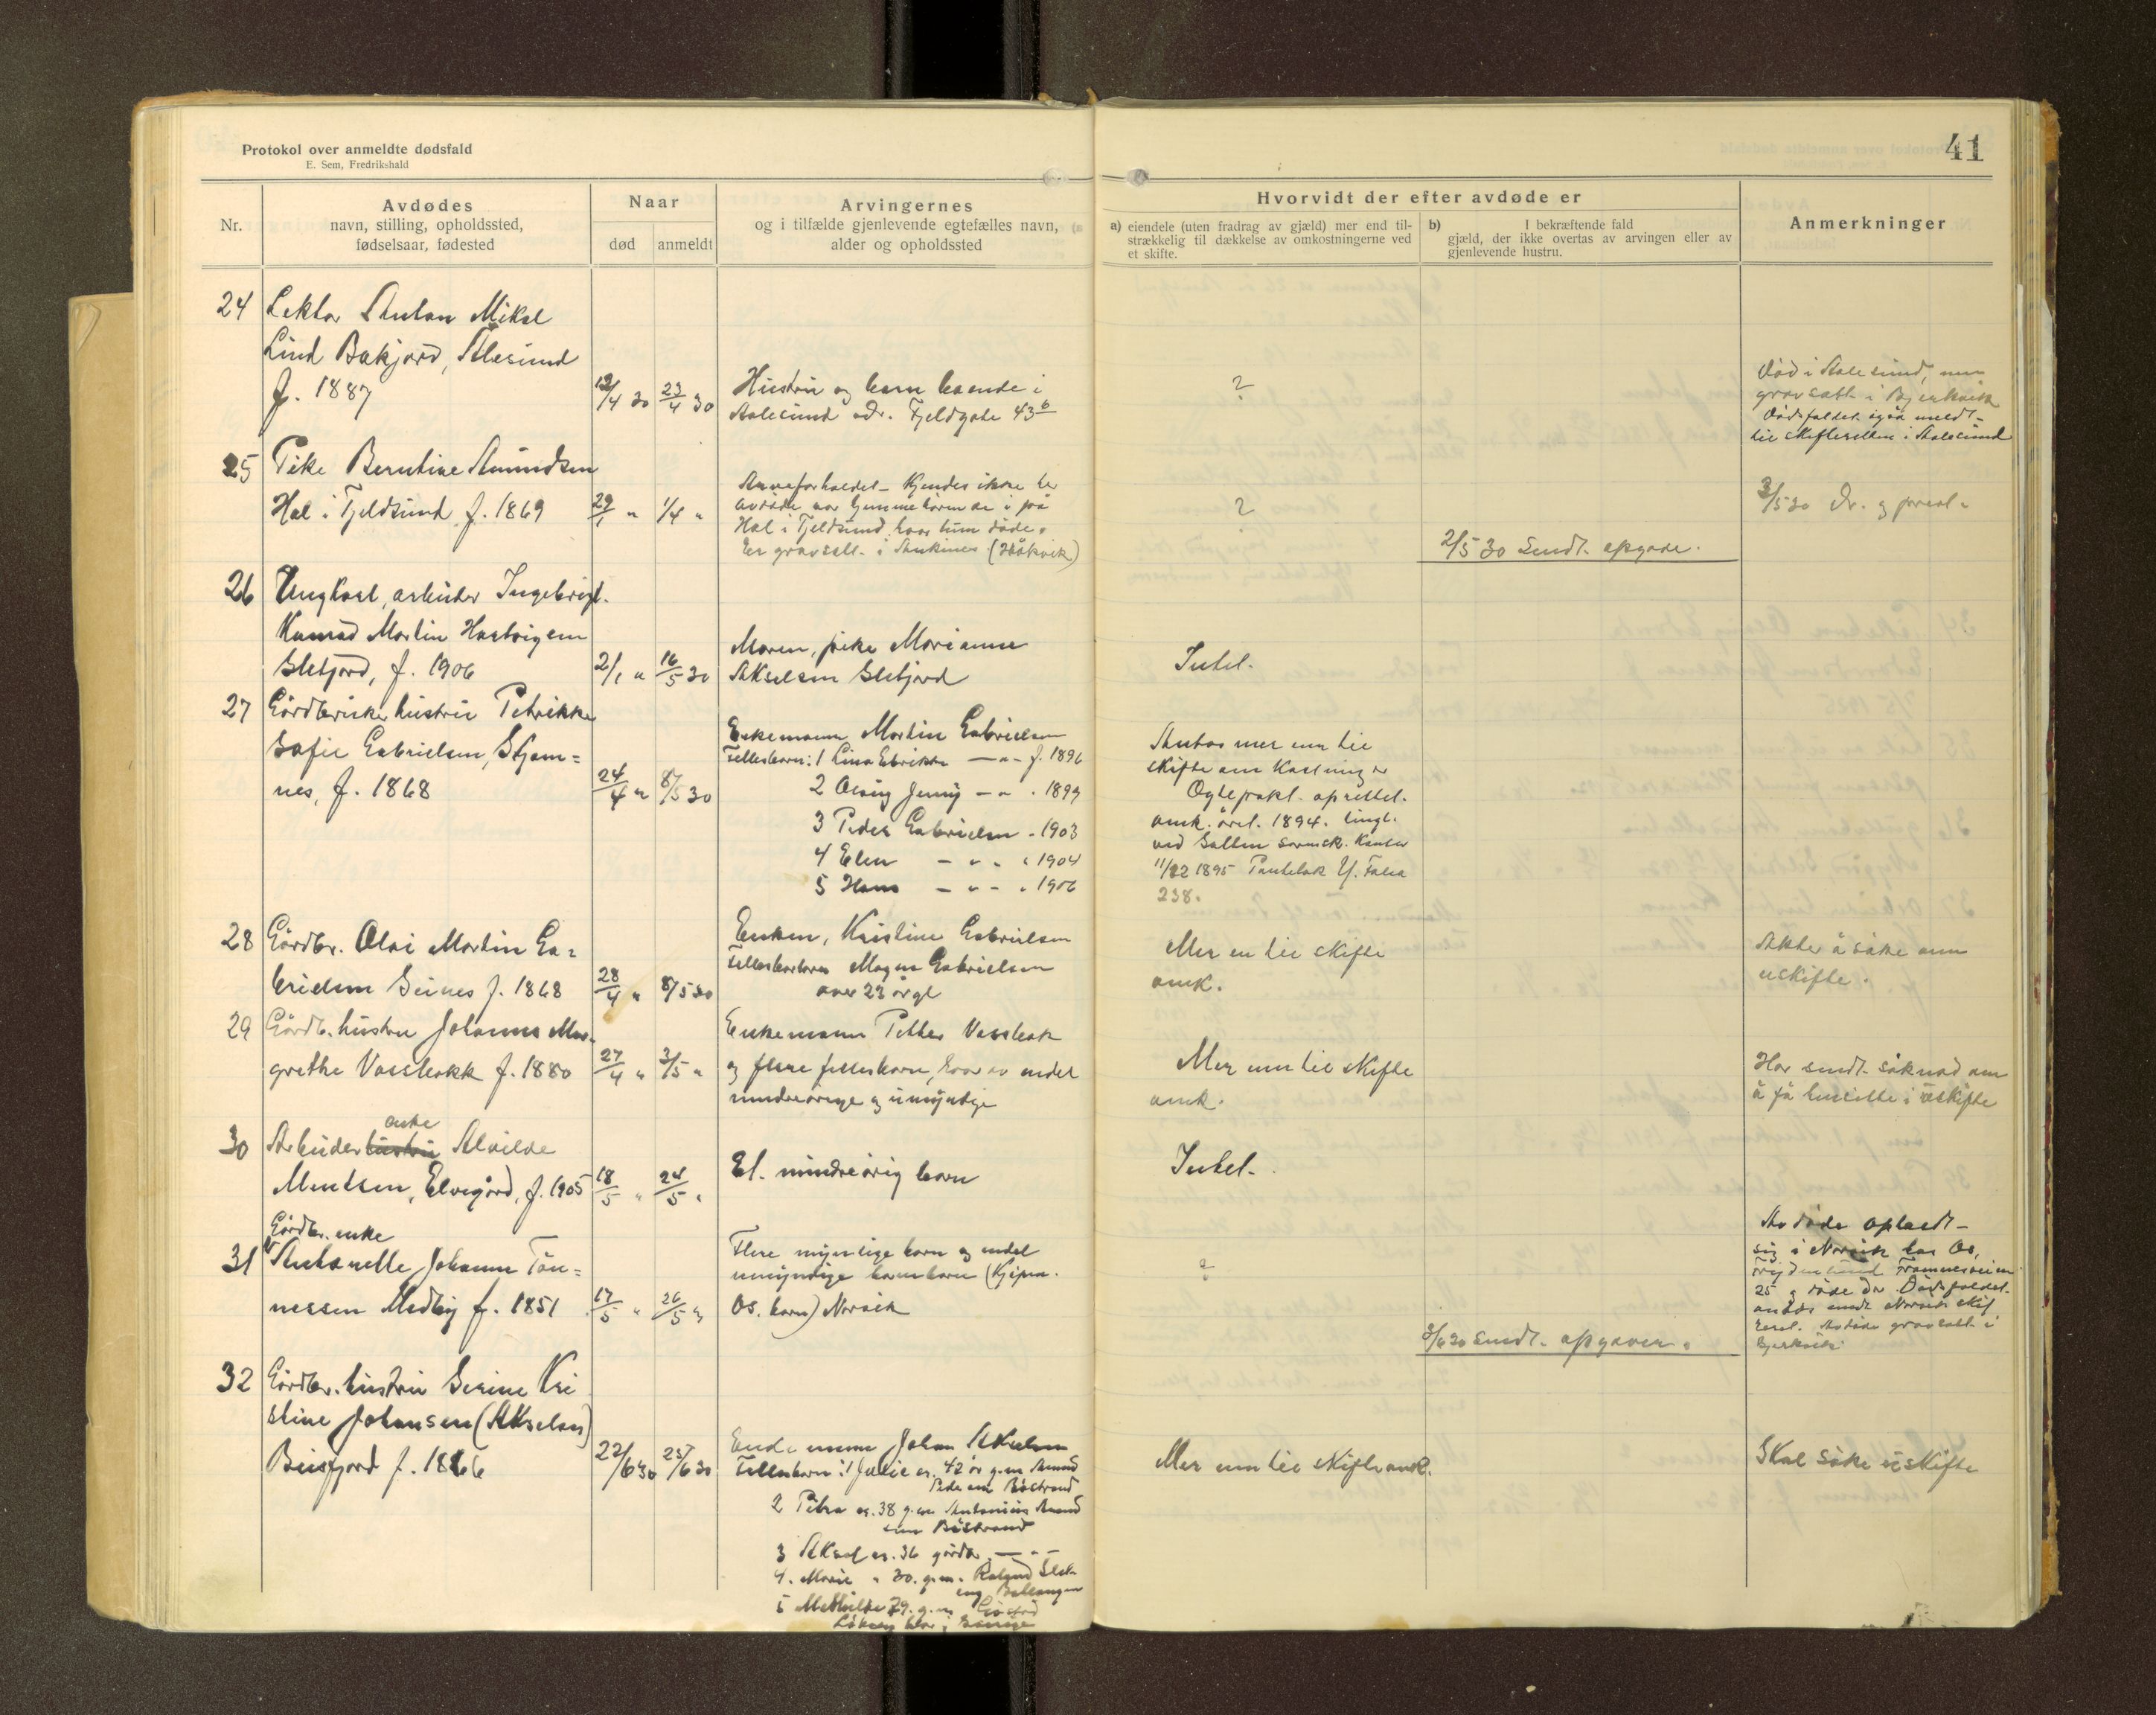 Protokol over anmeldte dødsfald
E. Sem, Fredrikshald
41
Nr.
Avdødes
navn, stilling, opholdssted,
fødselsaar, fødested
Naar
død
anmeldt
Arvingernes
og i tilfælde gjenlevende egtefælles navn,
alder og opholdssted
Hvorvidt der efter avdøde er
a) eiendele (uten fradrag av gjæld) mer end til-
strækkelig til dækkelse av omkostningerne ved
et skifte.
b) I bekræftende fald
gjæld, der ikke overtas av arvingen eller av
gjenlevende hustru.
Anmerkninger
24 Lektor Anton Mikal
Lind Bakjord, Ålesund
f. 1887
12/4 30 23/4 30
Hustru og barn boende i
Aalesund adr. Fjeldgate 43 b
?
Död i Aalesund, men
gravsatt i Bjerkvik
Dödsfaldet også meldt
til skifteretten i Aalesund
25 Pike Berntine Amundsen
Hol i Tjeldsund f. 1869
29/1 " 1/4 "
Arveforholdet kjendes ikke her
avdøde var hjemmehörende i på
Hol i Tjeldsund hvor hun döde.
Er gravsatt i Ankenes (Håkvik)
?
2/5 30 Sendt opgave.
3/5 30
26 Ungkarl, arbeider Ingebrigt
Konrad Martin Hartvigsen
Sletjord, f. 1906
2/1 " 16/5 30
Moren, pike Marianne
Akselsen Sletjord
Intet.
27 Gårdbruker hustru Petrikke
Sofie Gabrielsen, Skjom=
nes, f. 1868
24/4 " 8/5 30
Enkemann Martin Gabrielsen
Fellesbarn: 1 Lina — " - f. 1896
2 Olaug Jenny — " . 1899
3 Peder Gabrielsen - 1903
4 Elen - " - " 1904
5 Hans - " - " 1906
Antas mer enn til
skifte omkostninger
Egtepakt oprettet
omk. året 1894. tingl.
ved Salten sorensk. Kontor
11/22 1895 Pantebok Y. Folio
238.
28 Gårdbr. Olai Martin Ga=
brielsen Seines f. 1868
28/4 " 8/5 30
Enken, Kristine Gabrielsen
Fellesbarn Magna Gabrielsen
over 23 år gl
Mer en til skifte
omk.
Akter å söke om
uskifte.
29 Gårdb. hustru Johanna Mar-
grethe Vassbakk f. 1880
27/4 " 3/5 "
Enkemann Petter Vassbak
og flere fellesbarn, hvorav endel
mindreårige og umyndige
Mer enn til skifte
omk.
Har sendt söknad om
å få hensitte i uskifte
30 Arbeider hustru enke Alvilde
Mentsen, Elvegård, f. 1905
18/5 " 24/5 "
Et mindreårig barn
Intet.
Gårdbr. enke
31 Antonette Johanna Tön=
nessen Medby f. 1851
17/5 " 26/5 "
Flere myndige barn og endel
umyndige barnebarn (Kjipm.
Os. barn) Narvik
?
3/6 30 Sendt opgaver.
Avdöde opholdt
sig i Narvik hos Os,
Frydenlund Framnesveien
25 og döde der Dödsfaldet
Avdöde gravsatt i
Bjerkvik
32 Gårdbr. hustru Serine Kri
stine Johansen (Akselsen)
Beisfjord f. 1866
22/6 30 25/6 30
Enkemann Johan Akselsen
Fellesbarn: 1 Julie ca. 42 år g.m. Amund
Pedersen Båstrand
2 Petra ca. 38 g.m. Antonius Amund
sen Båstrand
3 Aksel ca. 36 gårdbr. — " —
4. Marie " 30. g.m.
Ballangen
5 29. g.m.
bor i Sverige
Mer enn til skifte omk.
Skal söke uskifte